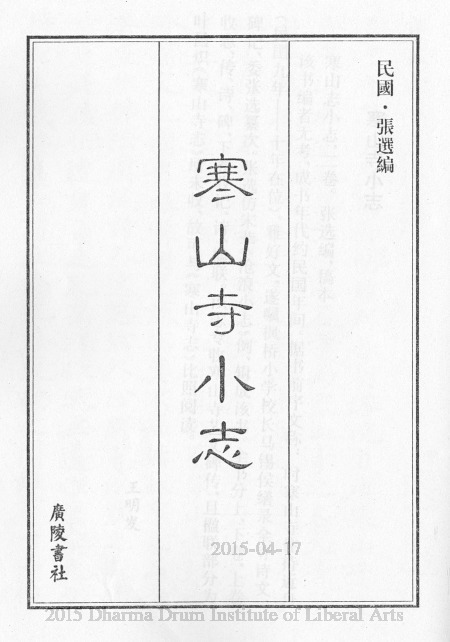 民國·張選編
寒山寺小志
廣陵書社
2015-04-17
2015 Dharma Drum Institute of Liberal Arts